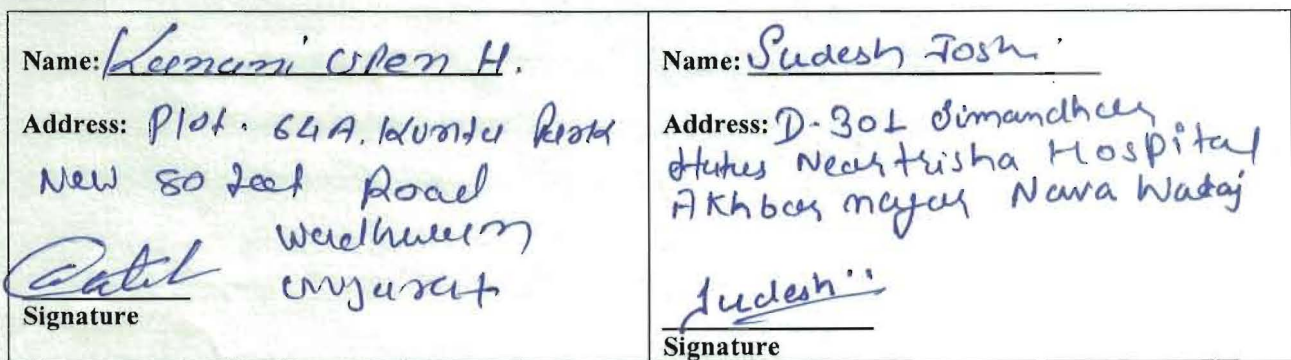 Name: Kunani Vipen H.
Address: Plot. 64A. Kuntu Park
New 80 feet Road
Wadhwan
Gujarat
Signature
Name: Sudesh Joshi
Address: D-301 Simandhar
Near trisha Hospital
Akhbar nagar Nava Wadaj
Sudesh
Signature